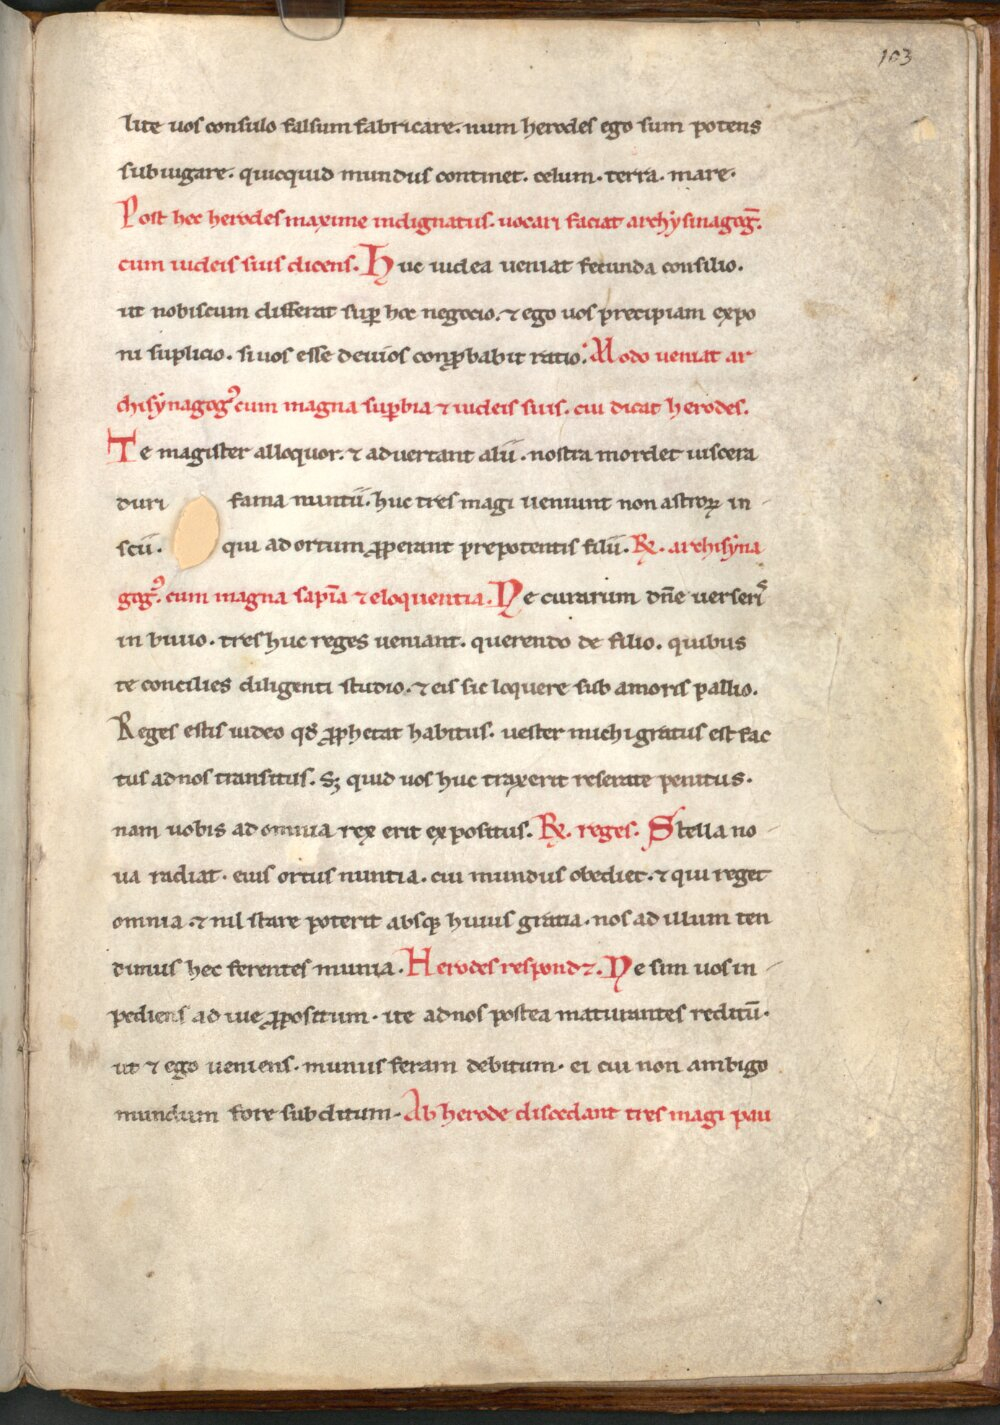 103
lite uos consulo falsum fabricare. num herodes ego sum potens
subiugare. quicquid mundus continet. celum. terra. mare.
Post hec herodes maxime indignatus. uocari faciat archysinagog̅.
cum iudeis suis dicens. Huc iudea ueniat fecunda consilio.
ut nobiscum differat sup̱ hoc negocio. ⁊ ego uos precipiam expo
ni suplicio. si uos esse deuios conꝓbabit ratio. Modo ueniat ar
chisynagogꝰ cum magna suꝑbia ⁊ iudeis suis. cui dicat herodes.
Te magister alloquor. ⁊ aduertant alii. nostra mordet uiscera
duri fama nuntii. huc tres magi ueniunt non astroꝝ in-
scii. qui ad ortum ꝓperant prepotentis filii. ℞. archisyna
gogꝰ. cum magna sapi̅a ⁊ eloquentia. Ne curarum dn̅e uerserꝭ
in biuio. tres huc reges ueniant. querendo de filio. quibus
te concilies diligenti studio. ⁊ eis sic loquere sub amoris pallio.
Reges estis uideo qđ ꝓphetat habitus. uester michi gratus est fac
tus ad nos transitus. Sꝫ quid uos huc traxerit reserate penitus.
nam uobis ad omnia rex erit expositus. ℞. reges. Stella no-
ua radiat. eius ortus nuntia. cui mundus obediet. ⁊ qui reget
omnia. ⁊ nil stare poterit absqꝫ huius gratia. nos ad illum ten
dimus hec ferentes munia. Herodes respond⁊. Ne sim uos in-
pediens ad uie ꝓpositum. ite ad nos postea maturantes reditu̅.
ut ⁊ ego ueniens. munus feram debitum. ei cui non ambigo
mundum fore subditum. Ab herode discedant tres magi pau